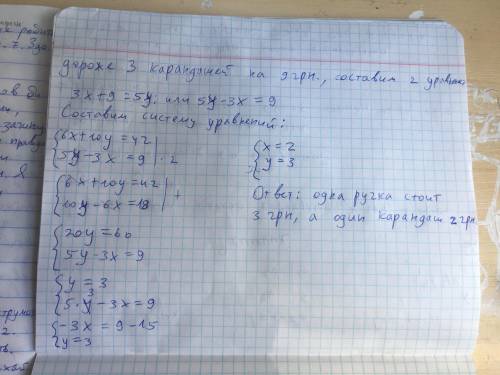 дороже 3 карандашей на 9 грн., составим 2 уравнение
3x + 9 = 5y; или 5y - 3x = 9
Составим систему уравнений:
{ 6x + 10y = 42
{ 5y - 3x = 9 | · 2
{ 6x + 10y = 42
{ 10y - 6x = 18 | +
{ 20y = 60
{ 5y - 3x = 9
{ y = 3
{ 5 · y - 3x = 9
3
{ -3x = 9 - 15
{ y = 3
{ x = 2
{ y = 3
Ответ: одна ручка стоит
3 грн, а один карандаш 2 грн